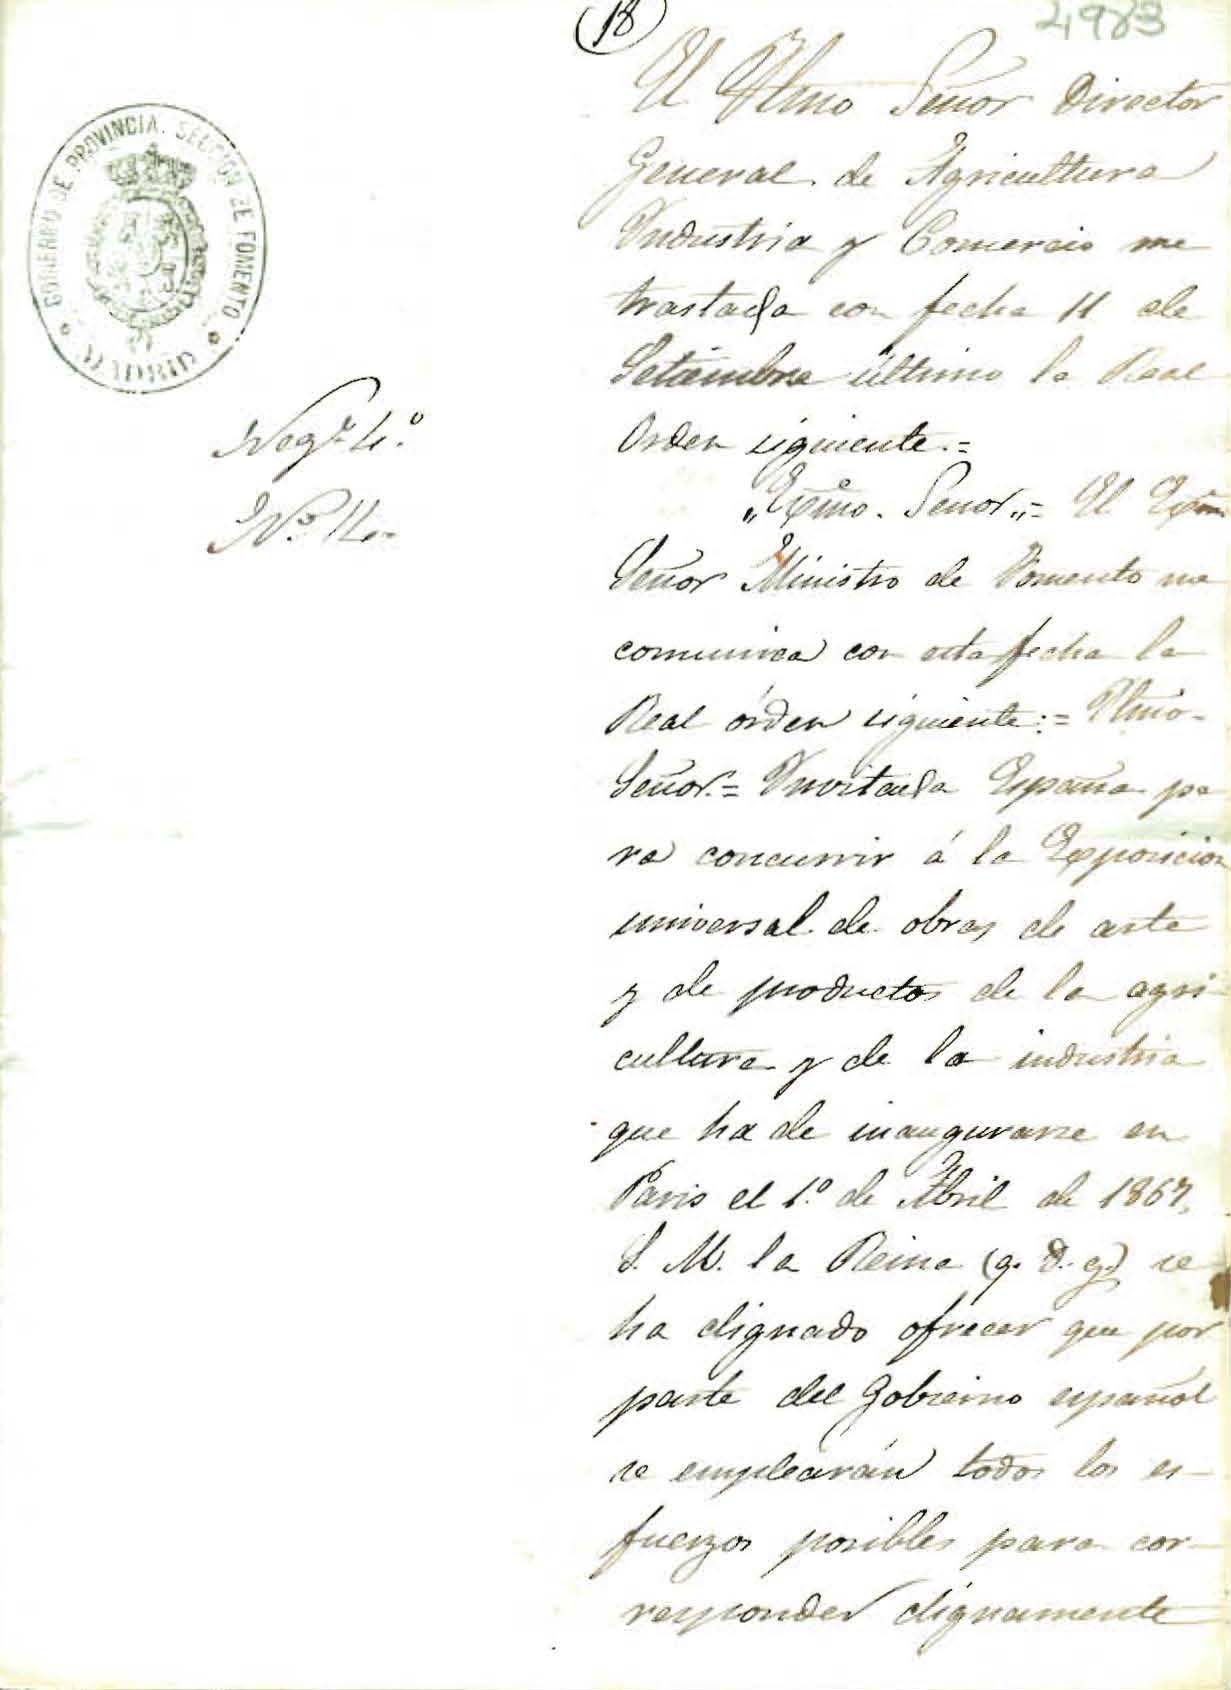 18
4983
GOBIERNO DE PROVINCIA. SECCION DE FOMENTO.
MADRID
Negº 4.º
Nº 11.
El Ylmo Señor Director
General de Agricultura
Yndustria y Comercio me
traslada con fecha 11 de
Setiembre último la Real
Orden siguiente.=
"Exmo. Señor„= El Exmo
Señor Ministro de Fomento me
comunica con esta fecha la
Real órden siguiente:= Ylmo-
Señor.= Ynvitada España pa
ra concurrir á la Exposicion
universal de obras de arte
y de productos de la agri-
cultura y de la industria
que ha de inaugurarse en
Paris el 1.º de Abril de 1867,
S. M. la Reina (q. D. g.) se
ha dignado ofrecer que por
parte del Gobierno español
se emplearán todos los es-
fuerzos posibles para cor-
responder dignamente